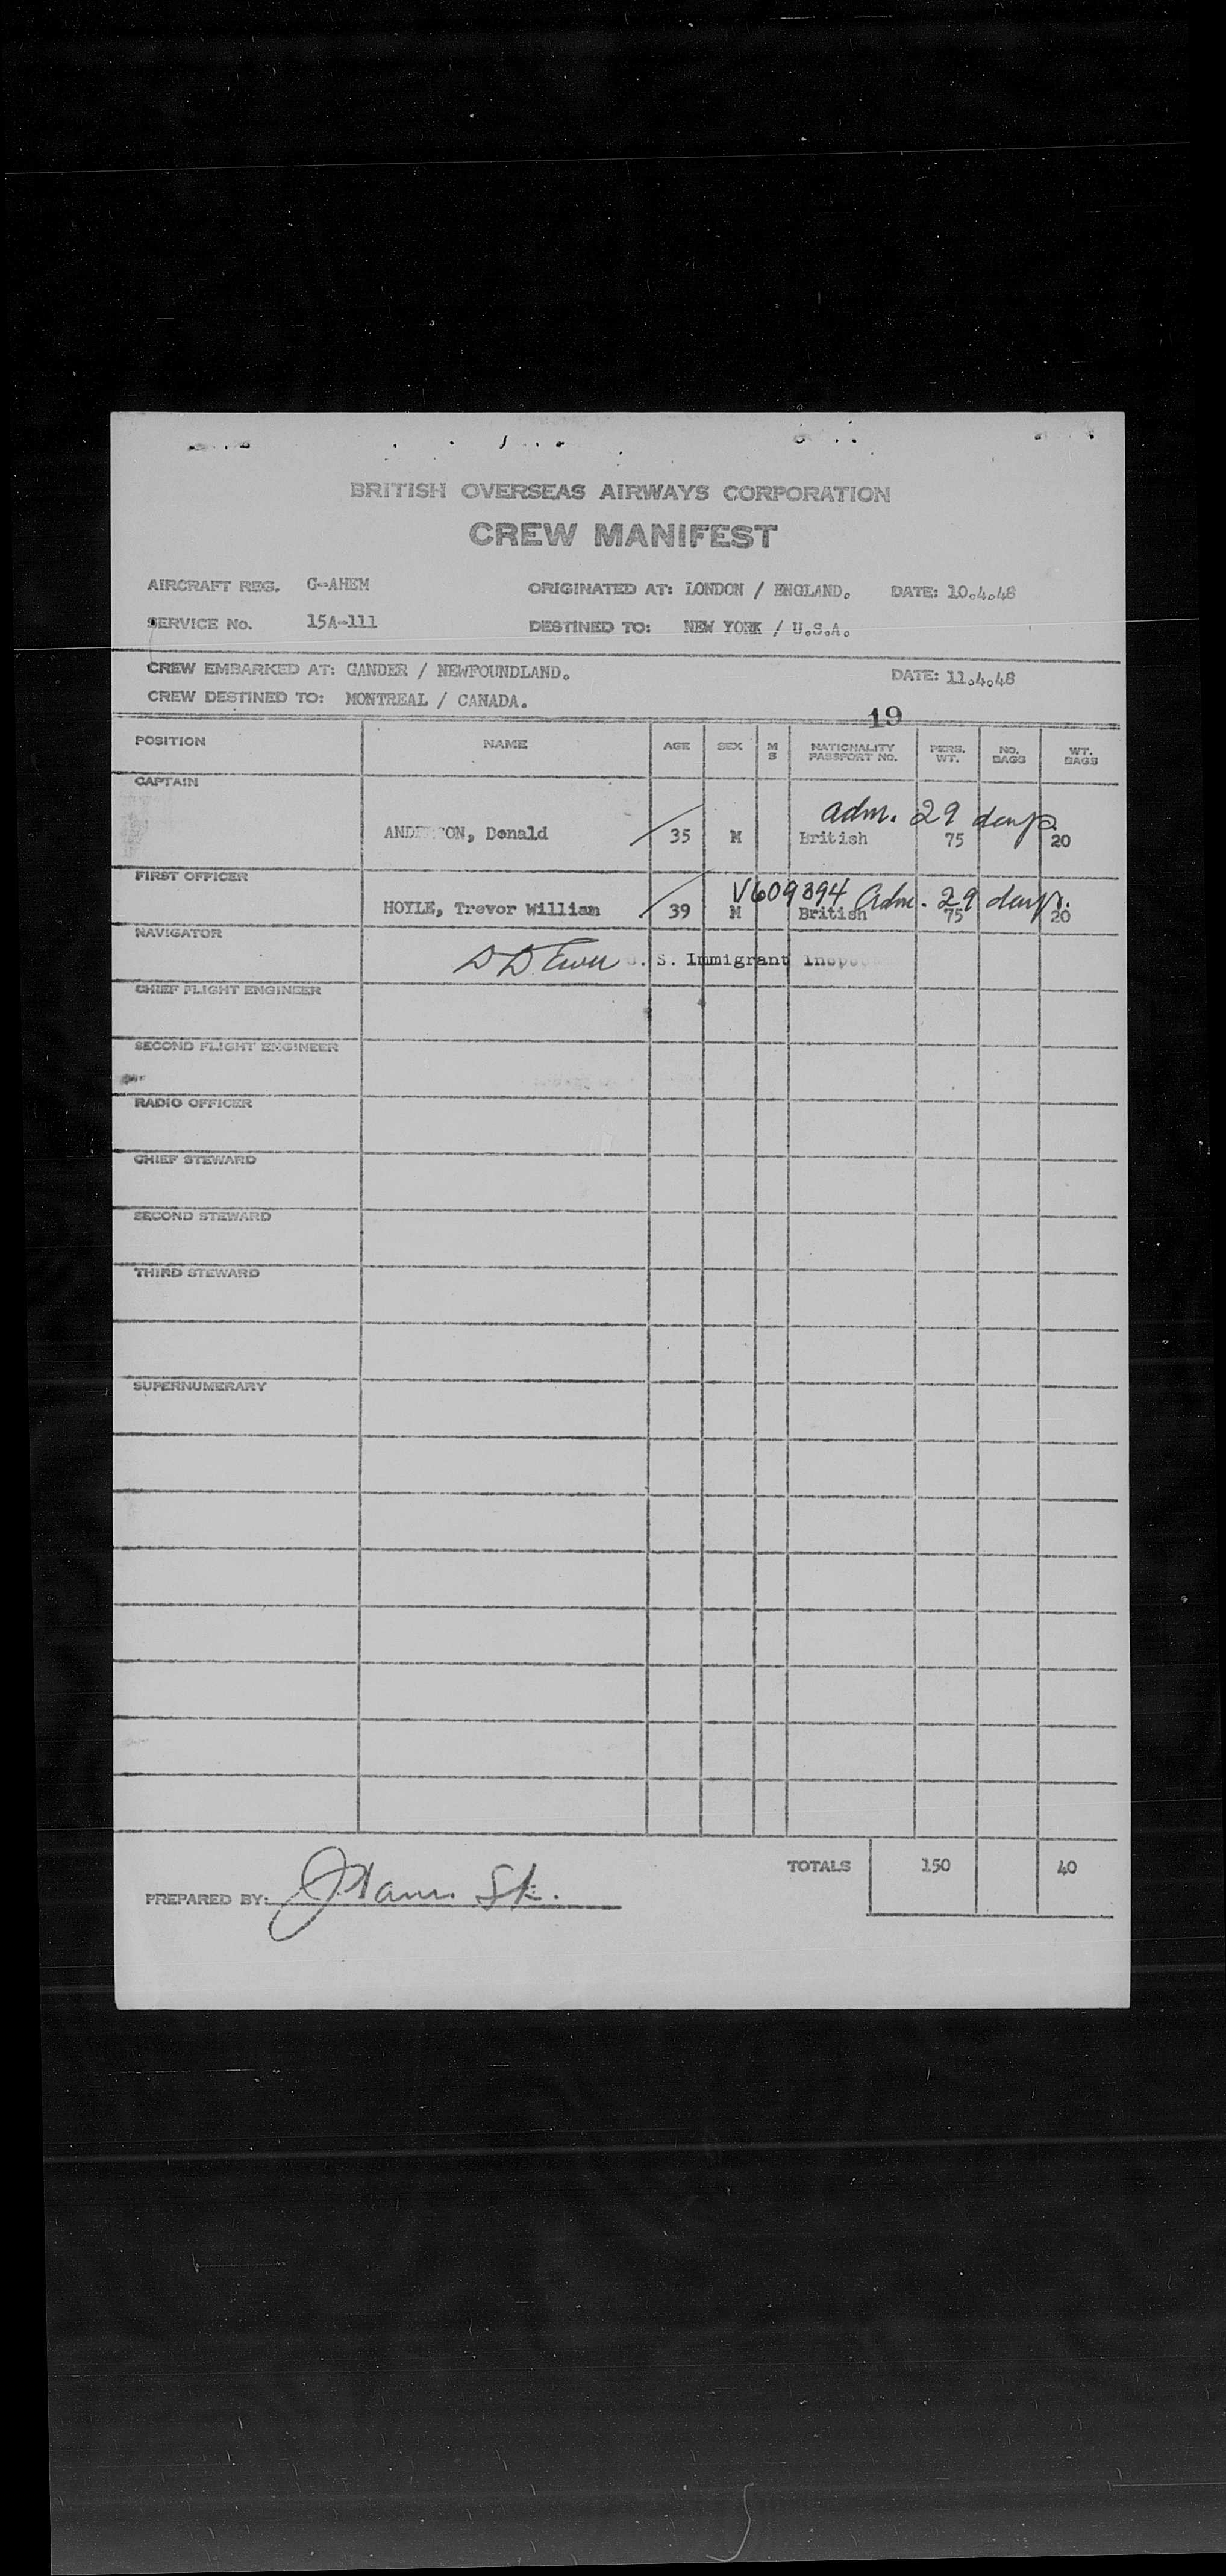 BRITISH OVERSEAS AIRWAYS CORPORATION
CREW MANIFEST
AIRCRAFT REG. G-AHEM ORIGINATED AT: LONDON / ENGLAND. DATE: 10.4.48
SERVICE No. 15A-111 DESTINED TO: NEW YORK / U.S.A.
CREW EMBARKED AT: GANDER / NEWFOUNDLAND. DATE: 11.4.48
CREW DESTINED TO: MONTREAL / CANADA.
19
POSITION NAME AGE SEX M S NATIONALITY PASSPORT NO. PERS. WT. NO. BAGS WT. BAGS
CAPTAIN
adm. 29 days.
Donald 35 M British 75 20
FIRST OFFICER
V609394 adm. 29 days.
HOYLE, Trevor William 39 M British 75 20
NAVIGATOR
S. Immigrant
CHIEF FLIGHT ENGINEER
SECOND FLIGHT ENGINEER
RADIO OFFICER
CHIEF STEWARD
SECOND STEWARD
THIRD STEWARD
SUPERNUMERARY
TOTALS 150 40
PREPARED BY: